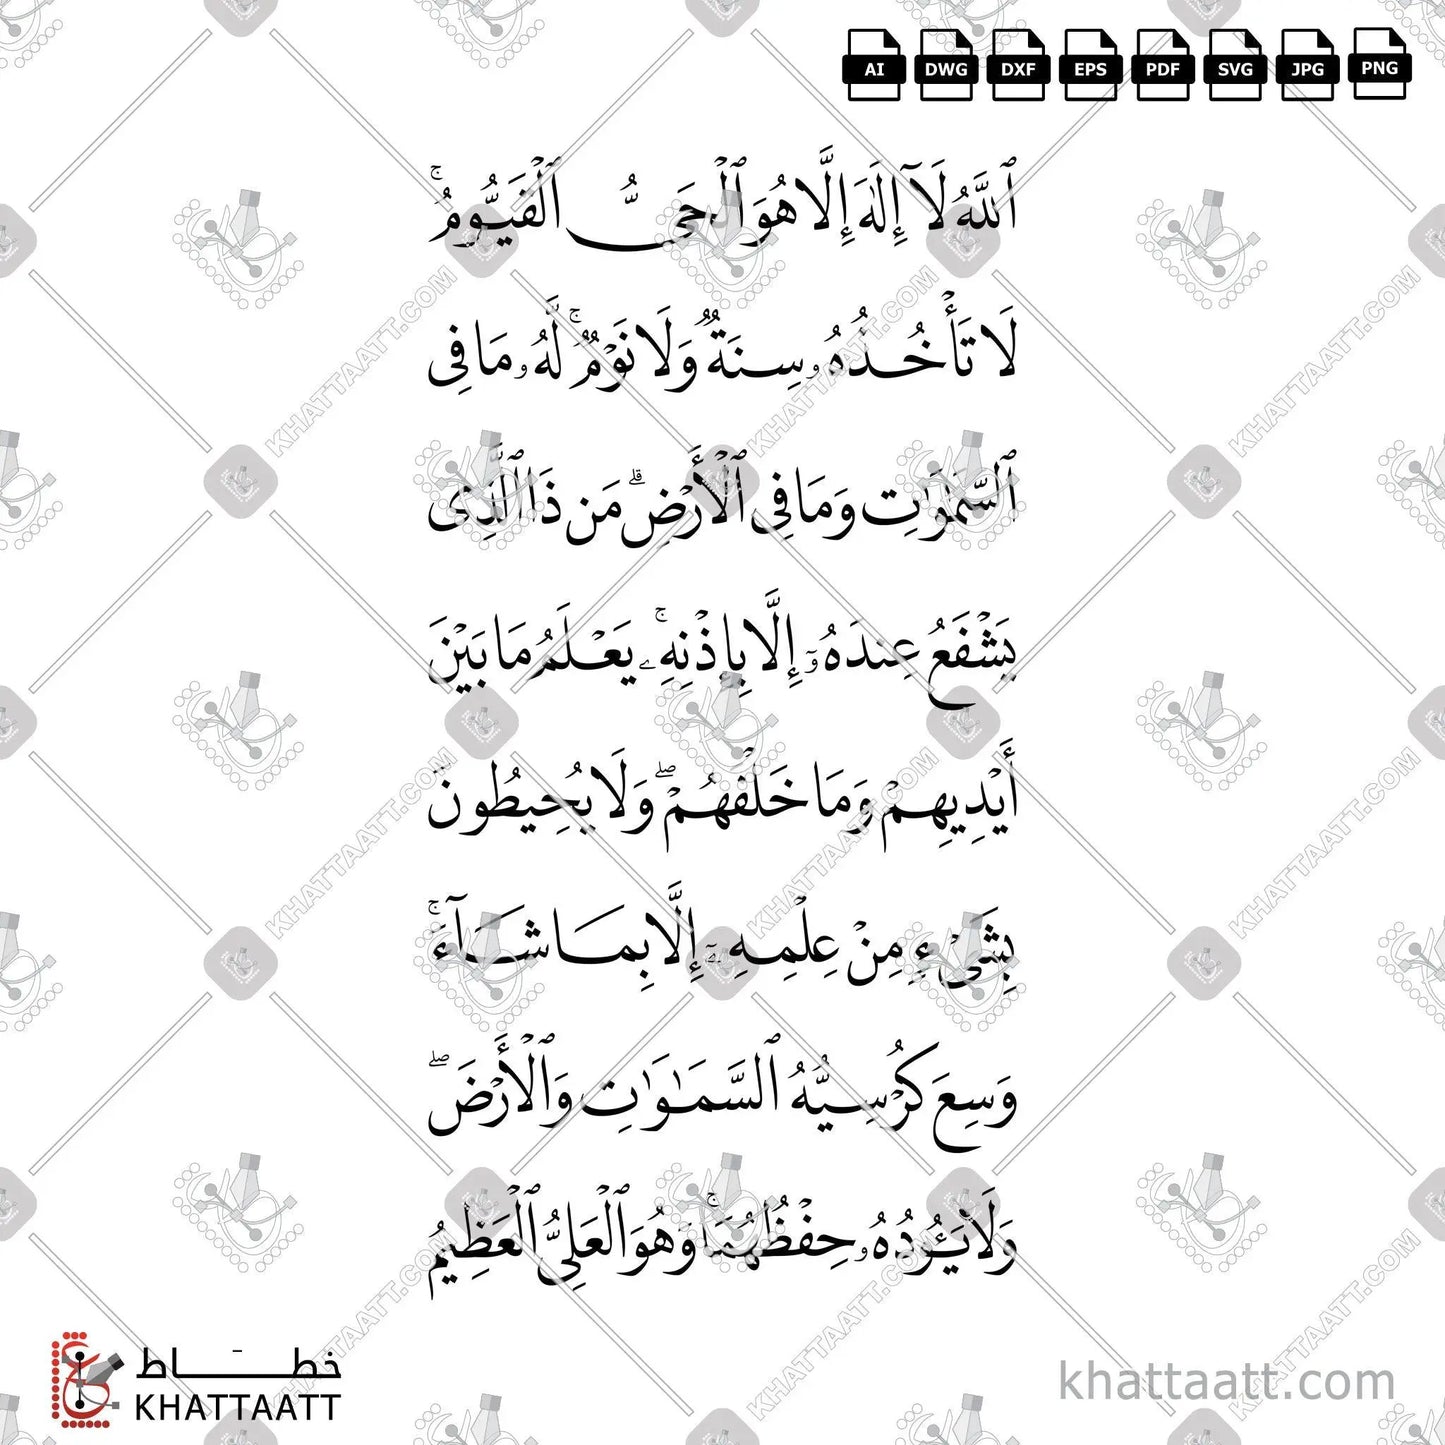 AI DWG DXF EPS PDF SVG JPG PNG
ٱللَّهُ لَآ إِلَٰهَ إِلَّا هُوَ ٱلْحَىُّ ٱلْقَيُّومُ ۚ
لَا تَأْخُذُهُۥ سِنَةٌ وَلَا نَوْمٌ ۚ لَّهُۥ مَا فِى
ٱلسَّمَٰوَٰتِ وَمَا فِى ٱلْأَرْضِ ۗ مَن ذَا ٱلَّذِى
يَشْفَعُ عِندَهُۥٓ إِلَّا بِإِذْنِهِۦ ۚ يَعْلَمُ مَا بَيْنَ
أَيْدِيهِمْ وَمَا خَلْفَهُمْ ۖ وَلَا يُحِيطُونَ
بِشَىْءٍ مِنْ عِلْمِهِۦٓ إِلَّا بِمَا شَآءَ ۚ
وَسِعَ كُرْسِيُّهُ ٱلسَّمَٰوَٰتِ وَٱلْأَرْضَ ۖ
وَلَا يَـُٔودُهُۥ حِفْظُهُمَا ۚ وَهُوَ ٱلْعَلِىُّ ٱلْعَظِيمُ
خطاط
KHATTAATT
khattaatt.com
KHATTAATT.COM